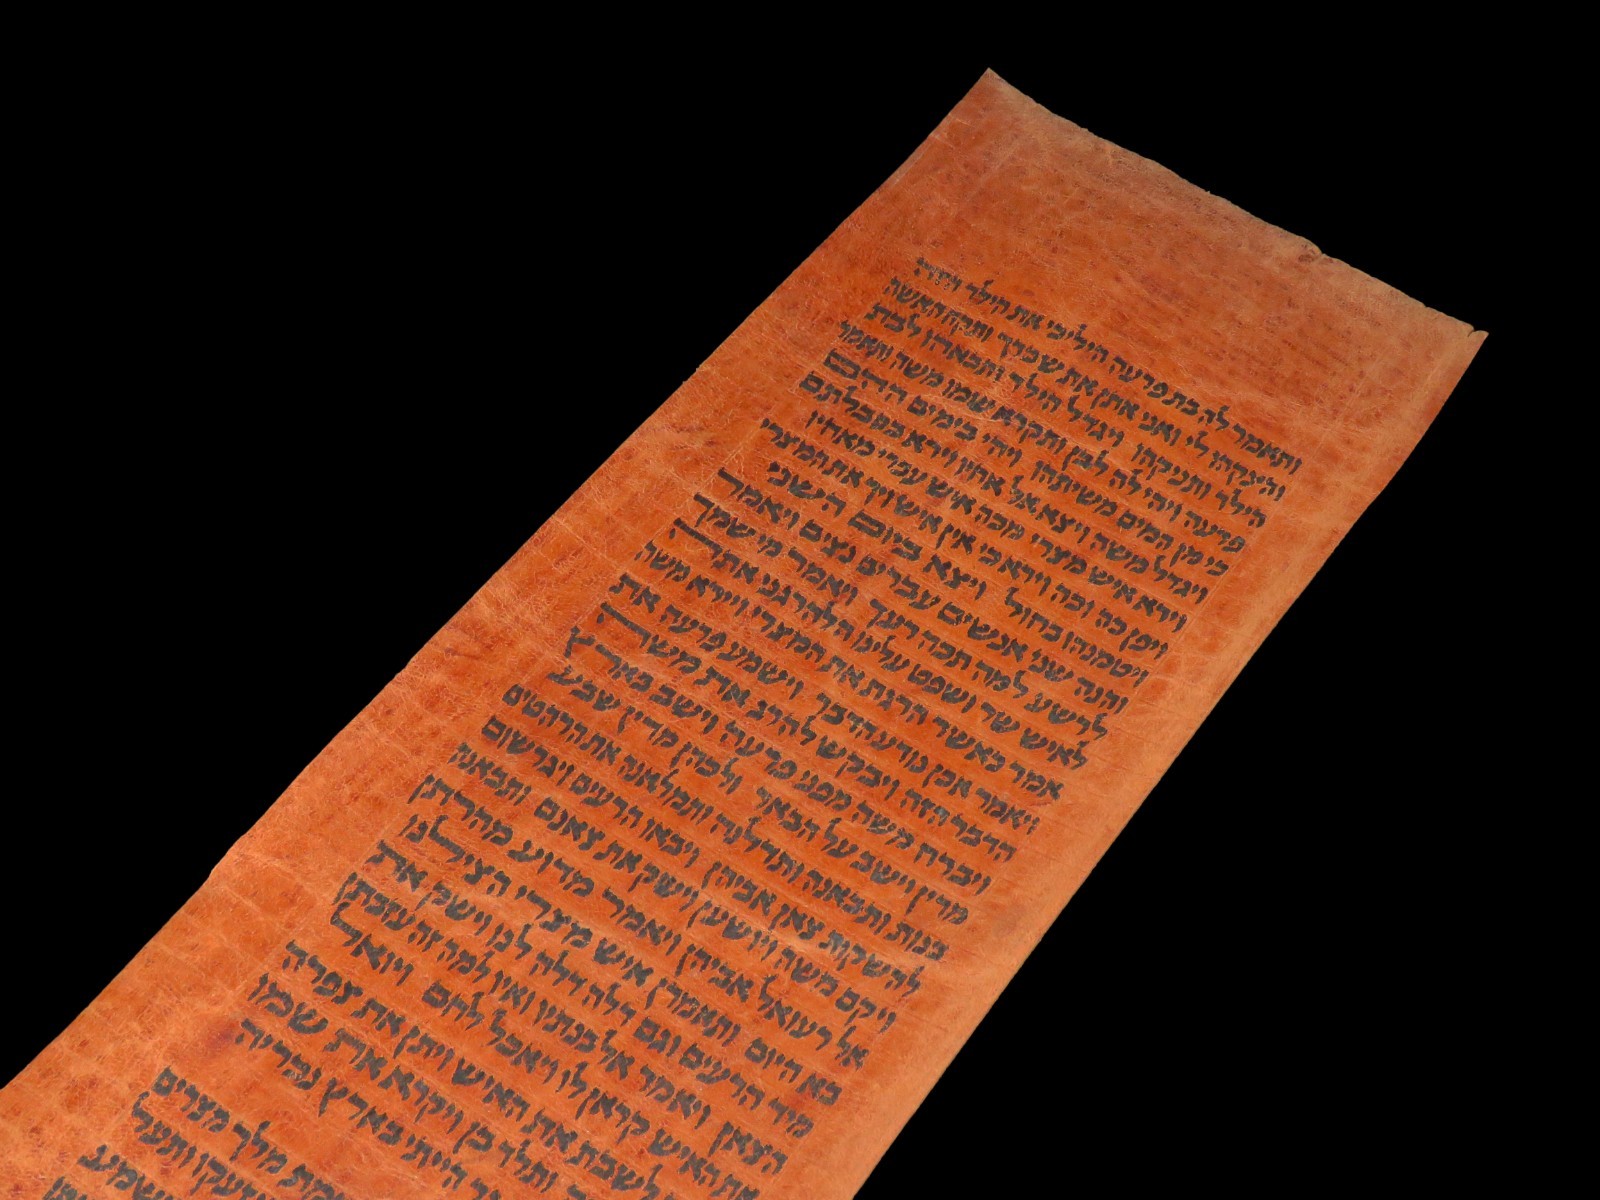 ותאמר לה בת פרעה היליכי את הילד הזה
והינקהו לי ואני אתן את שכרך ותקח האשה
הילד ותניקהו ויגדל הילד ותבאהו לבת
פרעה ויהי לה לבן ותקרא שמו משה ותאמר
כי מן המים משיתהו ויהי בימים ההם
ויגדל משה ויצא אל אחיו וירא בסבלתם
וירא איש מצרי מכה איש עברי מאחיו
ויפן כה וכה וירא כי אין איש ויך את המצרי
ויטמנהו בחול ויצא ביום השני
והנה שני אנשים עברים נצים ויאמר
לרשע למה תכה רעך ויאמר מי שמך
לאיש שר ושפט עלינו הלהרגני אתה
אמר כאשר הרגת את המצרי ויירא משה
ויאמר אכן נודע הדבר וישמע פרעה את
הדבר הזה ויבקש להרג את משה
ויברח משה מפני פרעה וישב בארץ
מדין וישב על הבאר ולכהן מדין שבע
בנות ותבאנה ותדלנה ותמלאנה את הרהטים
להשקות צאן אביהן ויבאו הרעים ויגרשום
ויקם משה ויושען וישק את צאנם ותבאנה
אל רעואל אביהן ויאמר מדוע מהרתן
בא היום ותאמרן איש מצרי הצילנו
מיד הרעים וגם דלה דלה לנו וישק את
הצאן ויאמר אל בנתיו ואיו למה זה עזבתן
את האיש קראן לו ויאכל לחם ויואל
לשבת את האיש ויתן את צפרה
ותלד בן ויקרא את שמו
הייתי בארץ נכריה
מלך מצרים
ותעל